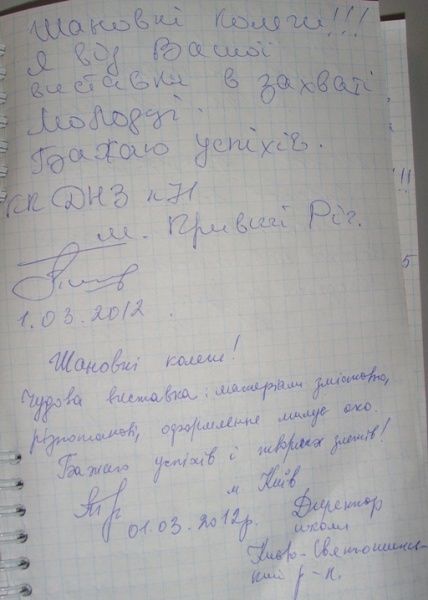 Шановні колеги!!!
Я від Вашої
виставки в захваті
Молодці.
Бажаю успіхів.
КК ДНЗ № 71
м. Кривий Ріг.
1.03.2012.
Шановні колеги!
Чудова виставка: матеріали змістовні,
різнопланові, оформлення милує око.
Бажаю успіхів і творчих злетів!
м Київ
01.03.2012р. Директор
школи
Києво-Святошинсь-
кий р-н.
!!
5